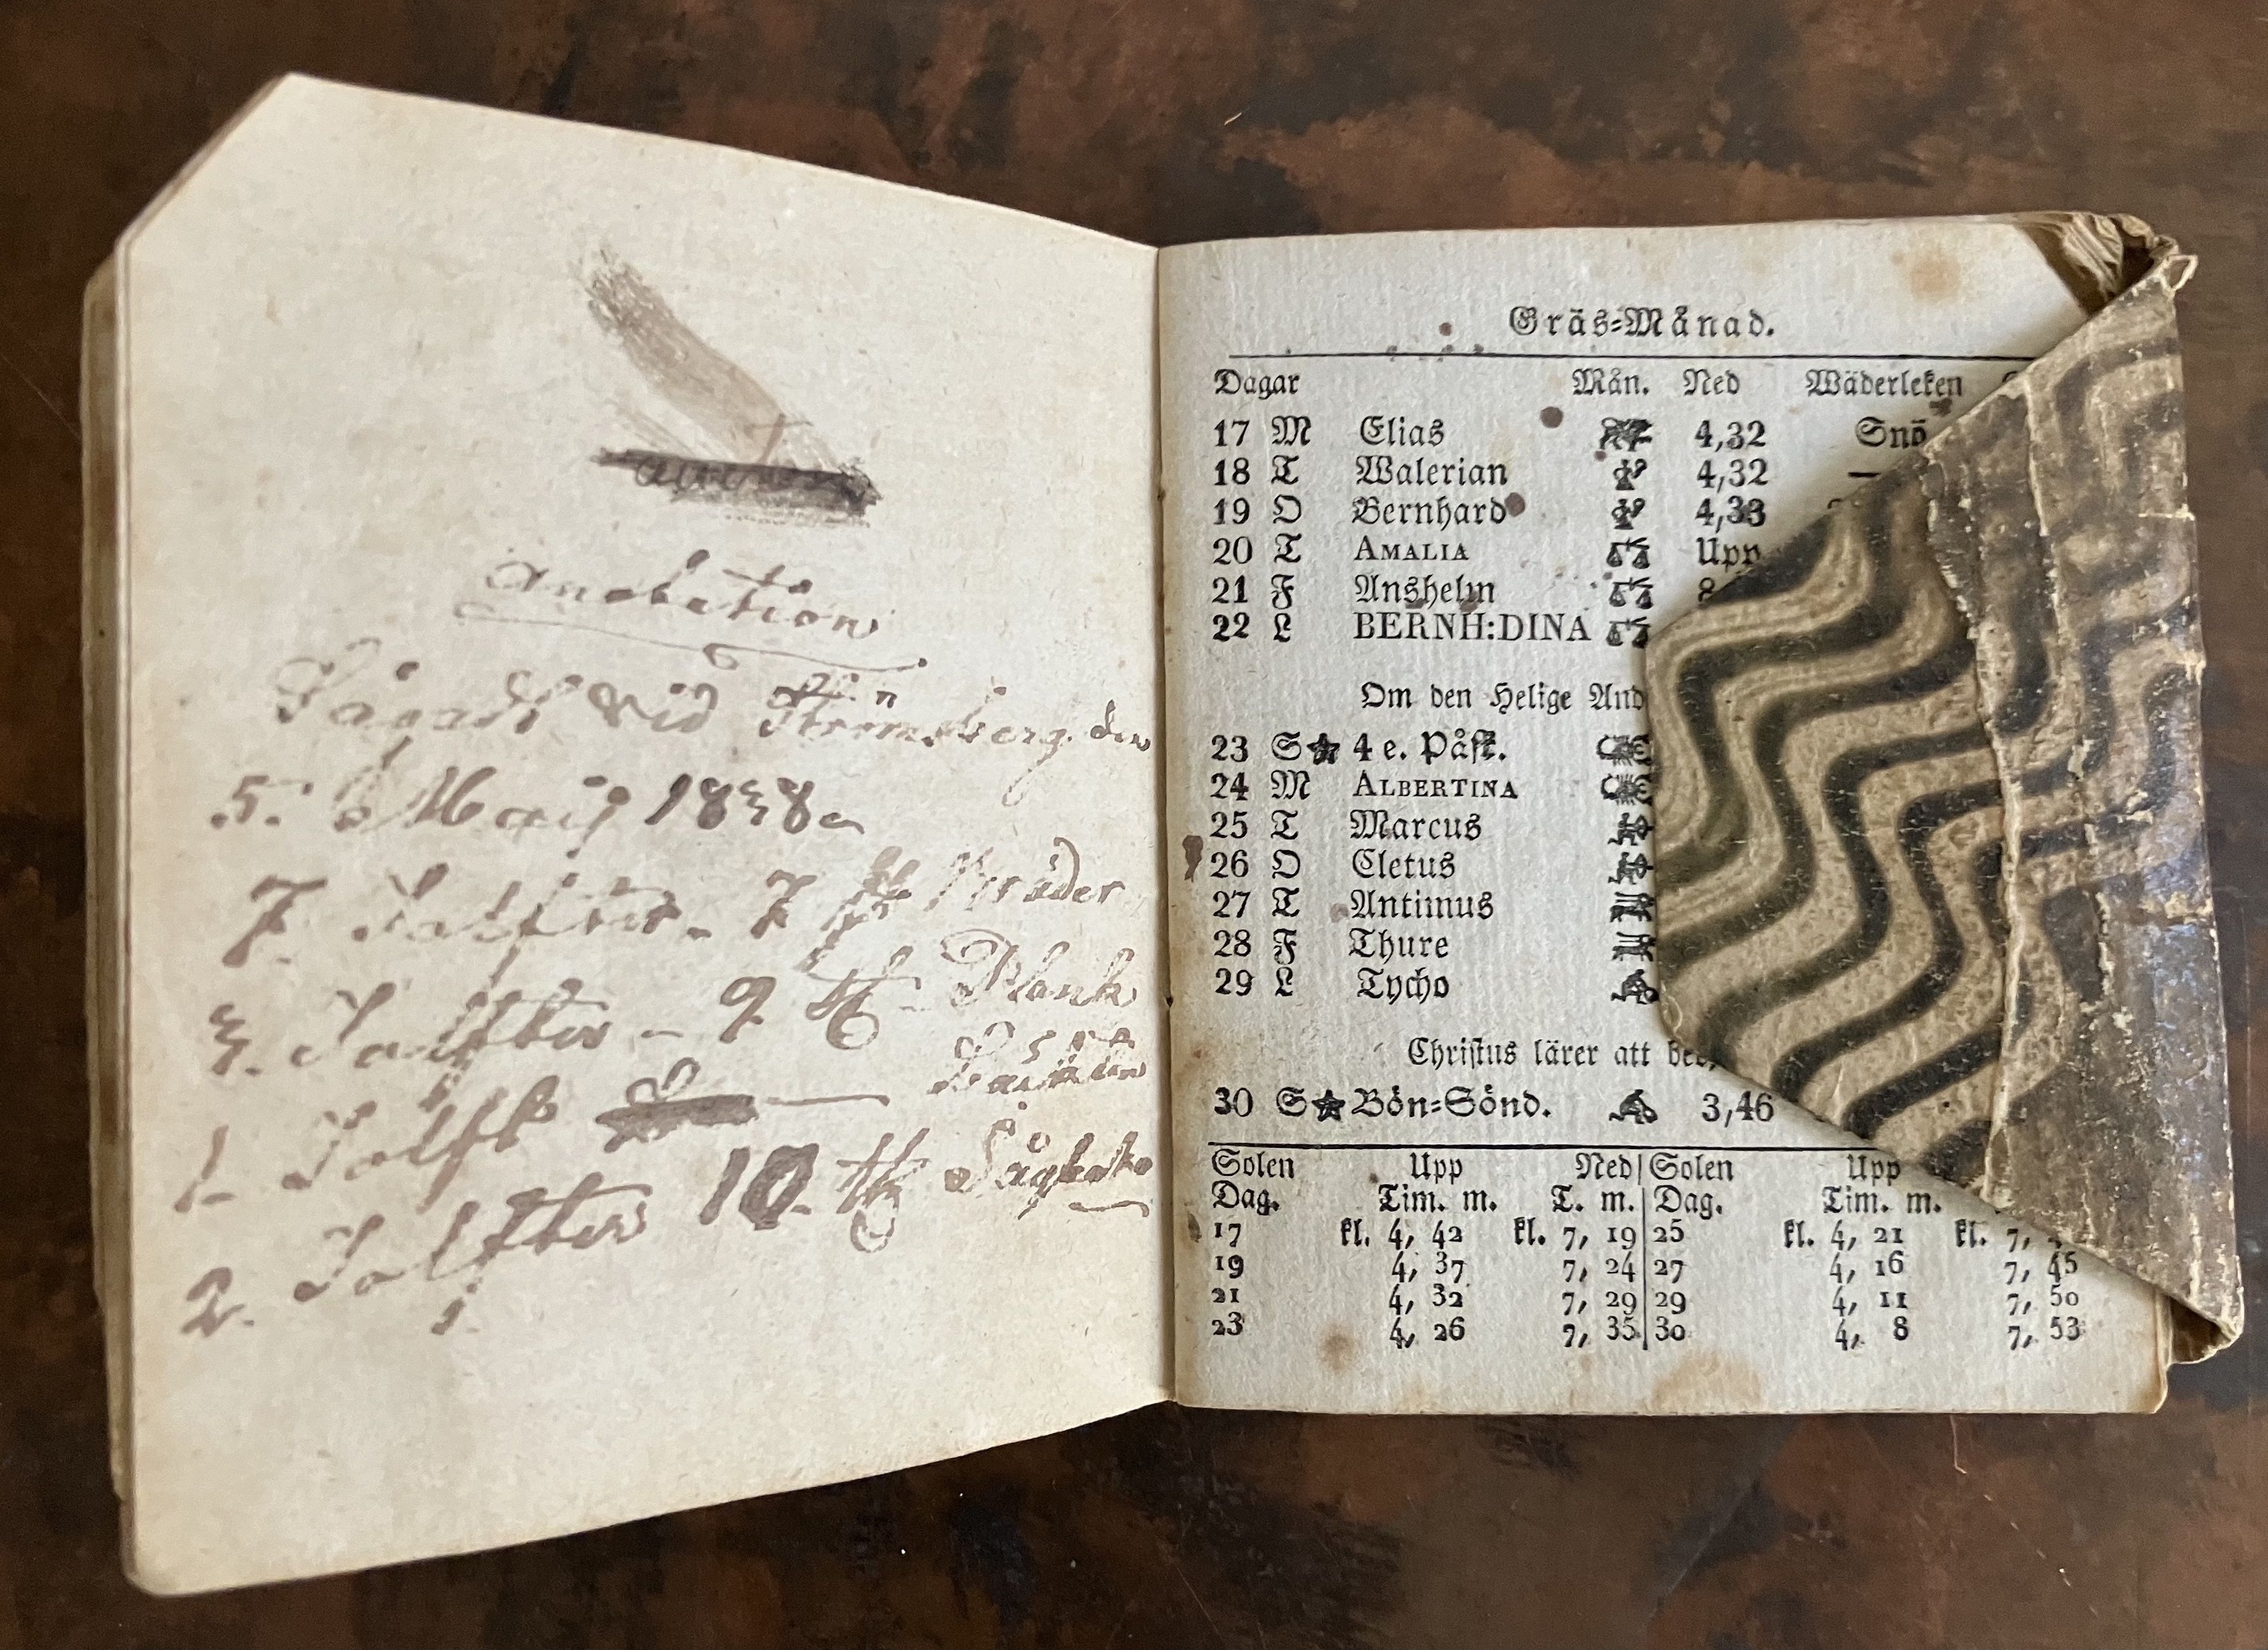 anotation
Sågadt vid Strömsberg den
5. Maij 1838
7. Tolfter - 7 Bräder
3. Tolfter - 9 Plank
1. Tolft
2. Tolfter 10 Sågbako
Gräs-Månad.
Dagar Mån. Ned Wäderleken
17 M Elias 4,32 Snö
18 T Walerian 4,32 —
19 O Bernhard 4,33
20 T AMALIA Upp
21 F Anshelm 8
22 L BERNH:DINA
Om den Helige And
23 S★ 4 e. Påsk.
24 M ALBERTINA
25 T Marcus
26 O Cletus
27 T Antimus
28 F Thure
29 L Tycho
Christus lärer att
30 S★ Bön-Sönd. 3,46
Solen Upp Ned Solen Upp
Dag. Tim. m. T. m. Dag. Tim. m.
17 kl. 4, 42 kl. 7, 19 25 kl. 4, 21 kl. 7,
19 4, 37 7, 24 27 4, 16 7, 45
21 4, 32 7, 29 29 4, 11 7, 50
23 4, 26 7, 35 30 4, 8 7, 53